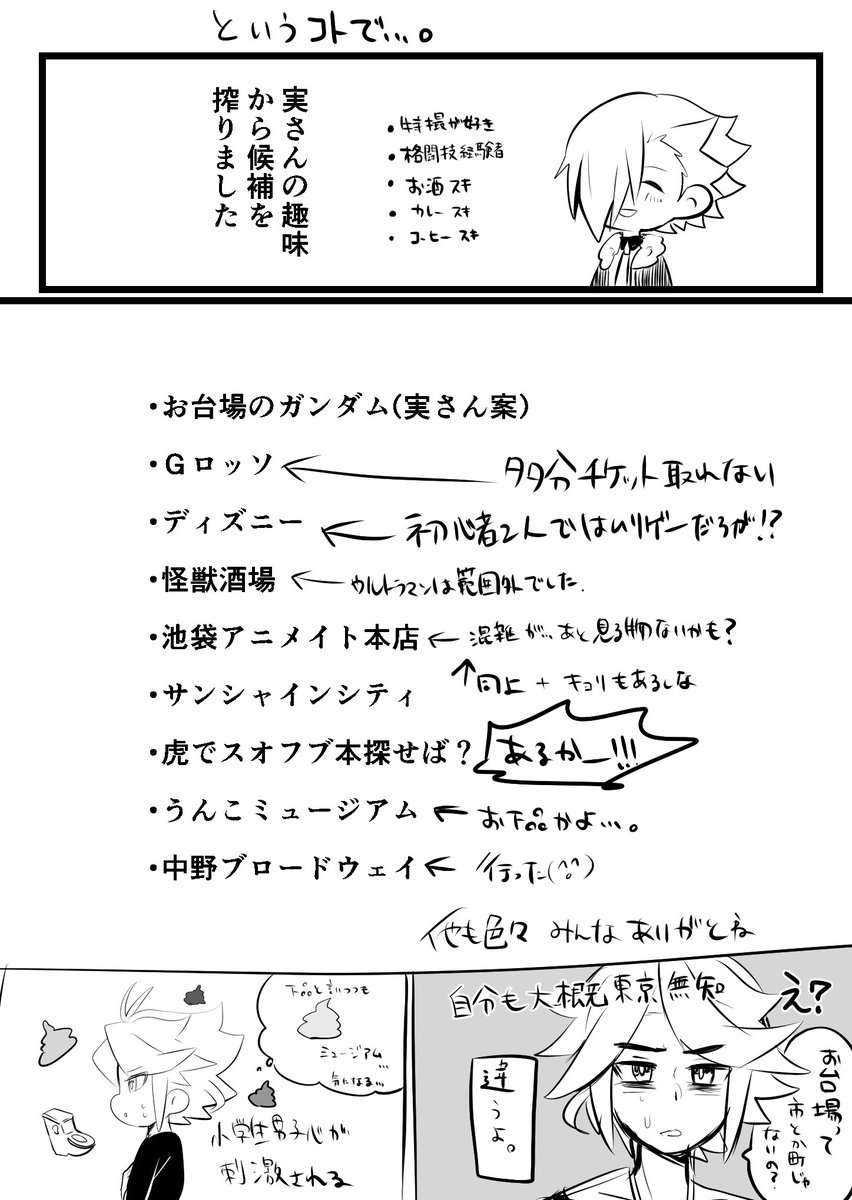 というコトで…。
実さんの趣味
から候補を
搾りました
・特撮が好き
・格闘技経験者
・お酒スキ
・カレースキ
・コーヒースキ
・お台場のガンダム(実さん案)
・Gロッソ
タタ分チケット取れない
・ディズニー
初心者2人ではムリゲーだろが!?
・怪獣酒場
ウルトラマンは範囲外でした.
・池袋アニメイト本店
混雑が…あと見る物ないかも?
・サンシャインシティ
同上 + キョリもあるしな
・虎でスオフブ本探せば?
あるかー!!!
・うんこミュージアム
お下品かよ…。
・中野ブロードウェイ
行った(^^)
他も色々 みんなありがとね
え?
自分も大概東京無知
お台場って
市とか町じゃ
ないの?
違うよ。
下品と言いつつも
ミュージアム
気になる…
小学生男子心が
刺激される